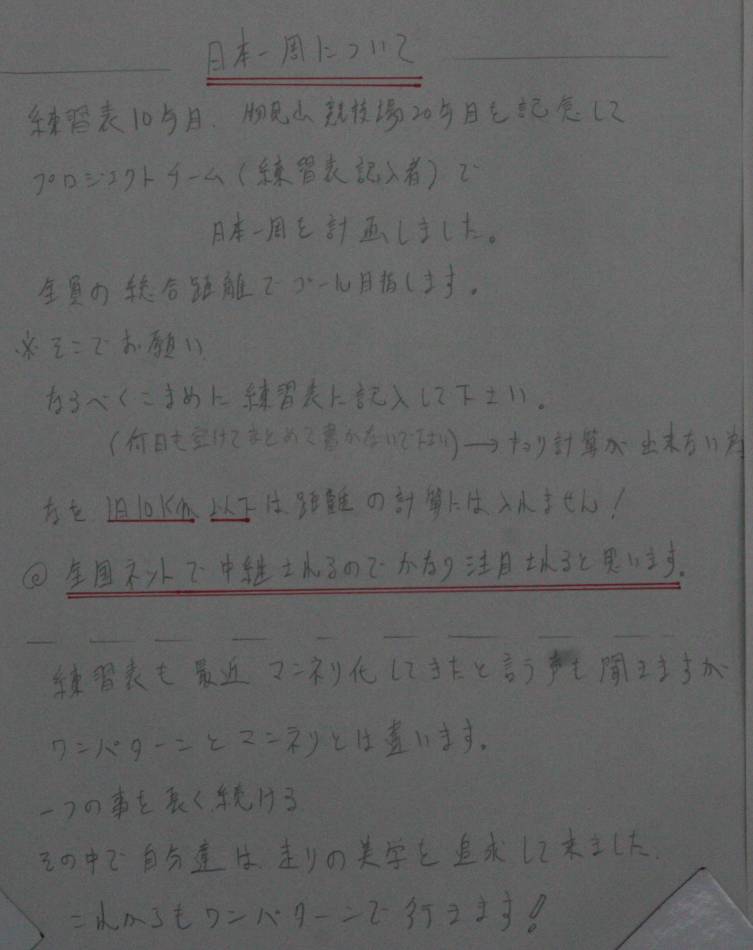 日本一周について
練習表10ヶ月、物見山競技場20ヶ月を記念して
プロジェクトチーム(練習表記入者)で
日本一周を計画しました。
全員の総合距離でゴール目指します。
※そこでお願い
なるべくこまめに練習表に記入して下さい。
(何日も空けてまとめて書かないで下さい)→ 計算が出来ない為
なを1日10Km以下は距離の計算には入れません!
◎全国ネットで中継されるのでかなり注目されると思います。
練習表も最近マンネリ化してきたと言う声も聞きますが
ワンパターンとマンネリとは違います。
一つの事を長く続ける
その中で自分達は走りの美学を追求して来ました。
これからもワンパターンで行きます!